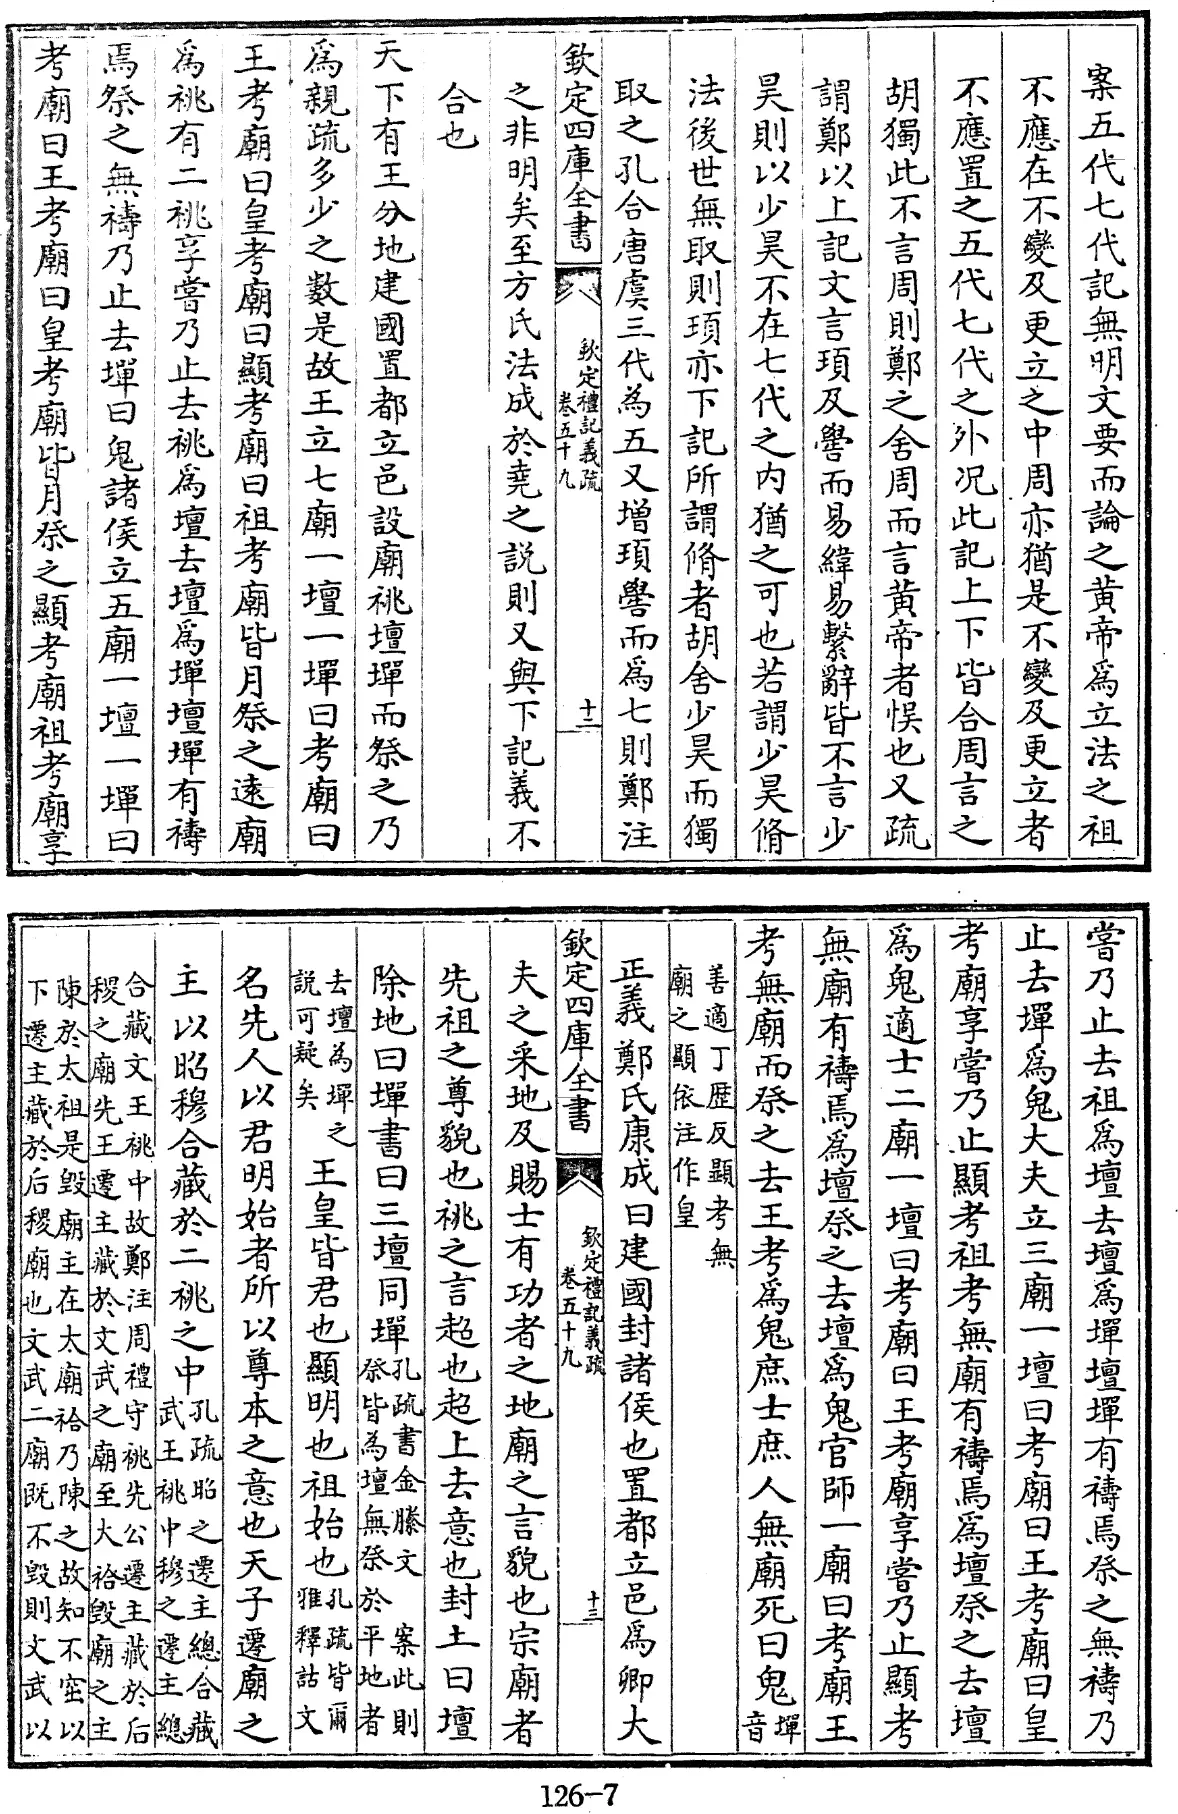 案五代七代記無明文要而論之黄帝爲立法之祖
不應在不變及更立之中周亦猶是不變及更立者
不應置之五代七代之外况此記上下皆合周言之
胡獨此不言周則鄭之舍周而言黄帝者悞也又疏
謂鄭以上記文言頊及嚳而易緯易繫辭皆不言少
昊則以少昊不在七代之内猶之可也若謂少昊脩
法後世無取則頊亦下記所謂脩者胡舍少昊而獨
取之孔合唐虞三代為五又增頊嚳而爲七則鄭注
欽定四庫全書
欽定禮記義疏
卷五十九
十二
之非明矣至方氏法成於堯之説則又與下記義不
合也
天下有王分地建國置都立邑設廟祧壇墠而祭之乃
爲親疏多少之數是故王立七廟一壇一墠曰考廟曰
王考廟曰皇考廟曰顯考廟曰祖考廟皆月祭之遠廟
爲祧有二祧享嘗乃止去祧爲壇去壇爲墠壇墠有禱
焉祭之無禱乃止去墠曰鬼諸侯立五廟一壇一墠曰
考廟曰王考廟曰皇考廟皆月祭之顯考廟祖考廟享
嘗乃止去祖爲壇去壇爲墠壇墠有禱焉祭之無禱乃
止去墠爲鬼大夫立三廟一壇曰考廟曰王考廟曰皇
考廟享嘗乃止顯考祖考無廟有禱焉爲壇祭之去壇
爲鬼適士二廟一壇曰考廟曰王考廟享嘗乃止顯考
無廟有禱焉爲壇祭之去壇爲鬼官師一廟曰考廟王
考無廟而祭之去王考爲鬼庶士庶人無廟死曰鬼墠音
善適丁歴反顯考無
廟之顯依注作皇
正義鄭氏康成曰建國封諸侯也置都立邑爲卿大
欽定四庫全書
欽定禮記義疏
卷五十九
十三
夫之采地及賜士有功者之地廟之言貌也宗廟者
先祖之尊貌也祧之言超也超上去意也封土曰壇
除地曰墠書曰三壇同墠孔疏書金縢文 案此則
祭皆為壇無祭於平地者
去壇為墠之
説可疑矣 王皇皆君也顯明也祖始也孔疏皆爾
雅釋詁文
名先人以君明始者所以尊本之意也天子遷廟之
主以昭穆合藏於二祧之中孔疏昭之遷主總合藏
武王祧中穆之遷主總
合藏文王祧中故鄭注周禮守祧先公遷主藏於后
稷之廟先王遷主藏於文武之廟至大祫毀廟之主
陳於太祖是毀廟主在太廟祫乃陳之故知不窋以
下遷主藏於后稷廟也文武二廟既不毀則文武以
126-7